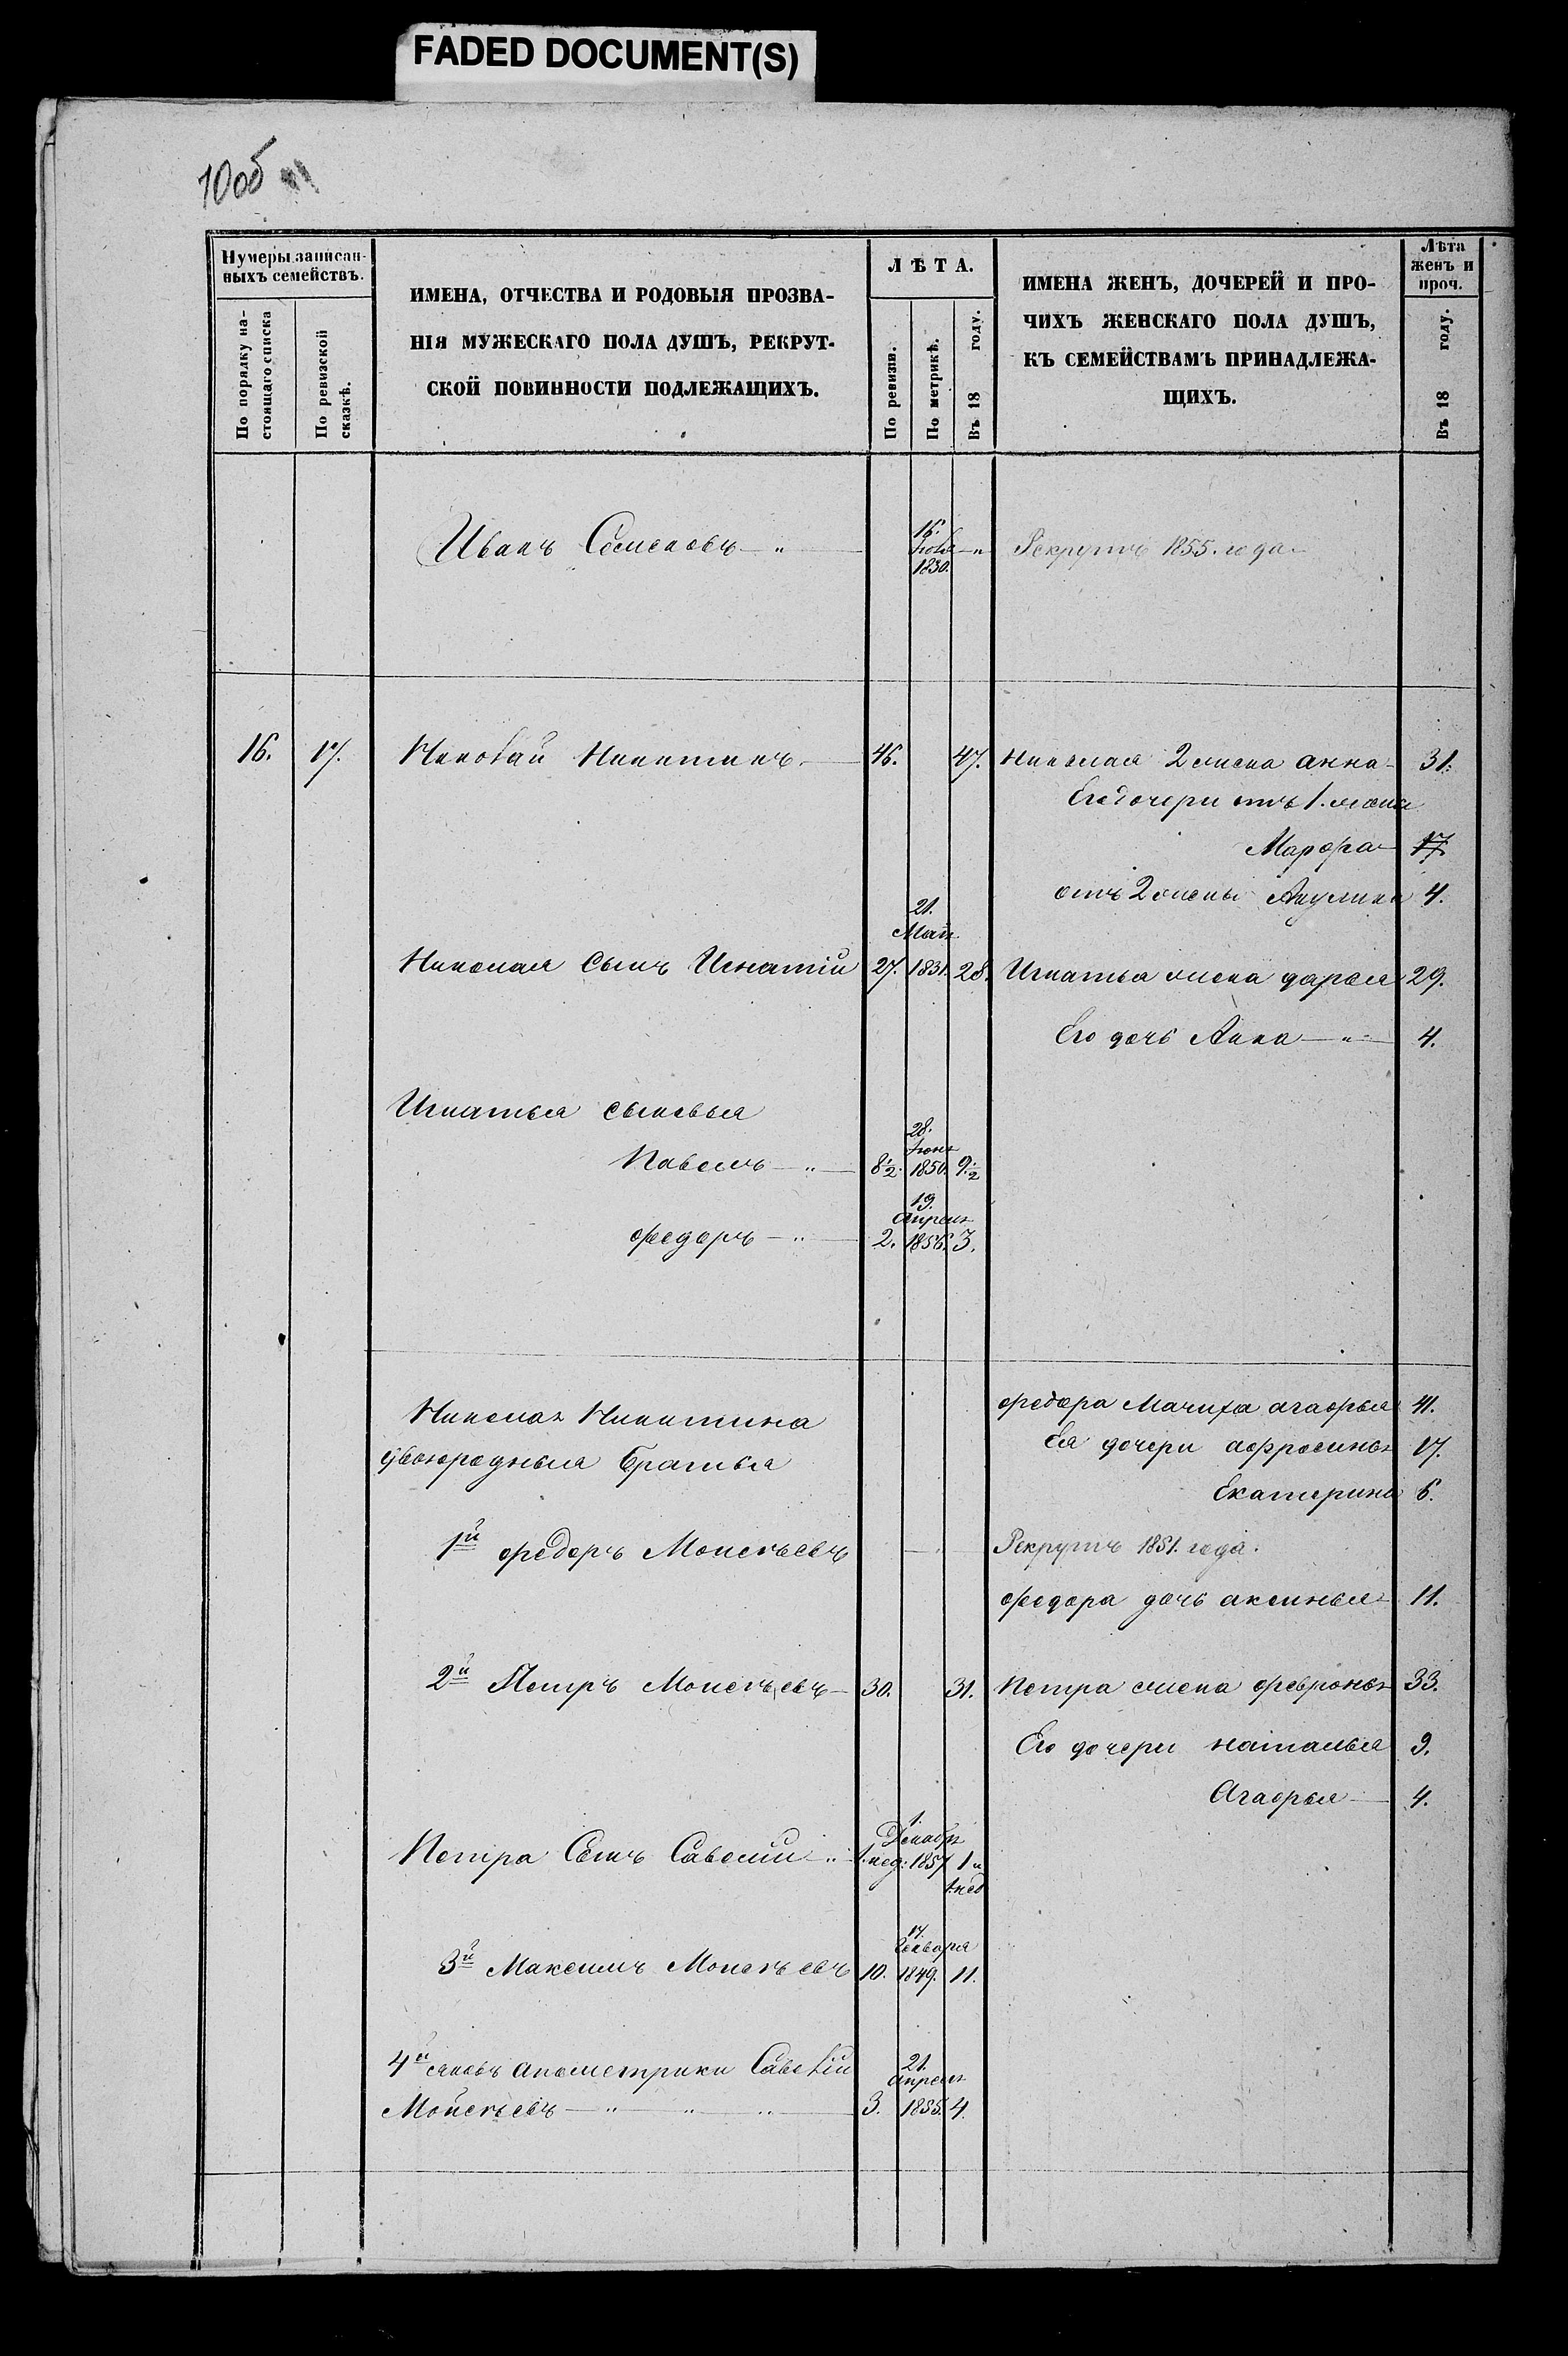 FADED DOCUMENT(S)
10об
Нумеры записан-
ныхъ семействъ.
По порядку на-
стоящаго списка
По ревизской
сказкѣ.
ИМЕНА, ОТЧЕСТВА И РОДОВЫЯ ПРОЗВА-
НІЯ МУЖЕСКАГО ПОЛА ДУШЪ, РЕКРУТ-
СКОЙ ПОВИННОСТИ ПОДЛЕЖАЩИХЪ.
ЛѢТА.
По ревизіи.
По метрикѣ.
Въ 18 году.
ИМЕНА ЖЕНЪ, ДОЧЕРЕЙ И ПРО-
ЧИХЪ ЖЕНСКАГО ПОЛА ДУШЪ,
КЪ СЕМЕЙСТВАМЪ ПРИНАДЛЕЖА-
ЩИХЪ.
Лѣта
женъ и
проч.
Въ 18 году.
Иванъ Семеновъ — " 16. 1830. — " Рекрутъ 1855. года
16. 17. Николай Никитинъ. 46. 47. Николая 2 жена анна 31.
Его дочери отъ 1. жены
Марфа 17
отъ 2 жены Акулина 4.
21.
Мая
Николая Сынъ Игнатій 27. 1831. 28. Игнатья жена дарья 29.
Его дочь Анна — " — 4.
Игнатья сыновья
28.
Іюня
Павелъ — " — 8 1/2. 1850. 9 1/2
19.
Апреля
федоръ — " — 2. 1856. 3.
Николая Никитина
двоюродныя братья
федора Мачиха агафья 41.
Ея дочери афросинья 17.
Екатерина 6.
1й федоръ Моисеевъ Рекрутъ 1851. года.
федора дочь аксинья 11.
2й Петръ Моисеевъ 30. 31. Петра жена февронья 33.
Его дочери наталья 9.
Агафья 4.
1.
Декабря
Петра Сынъ Савелій " 1. нед: 1857 1 и
1 нед
17.
Генваря
3й Максимъ Моисеевъ 10. 1849. 11.
21.
апреля
4й апометрики Савелій
Моисеевъ — " — " — " — 3. 1855. 4.